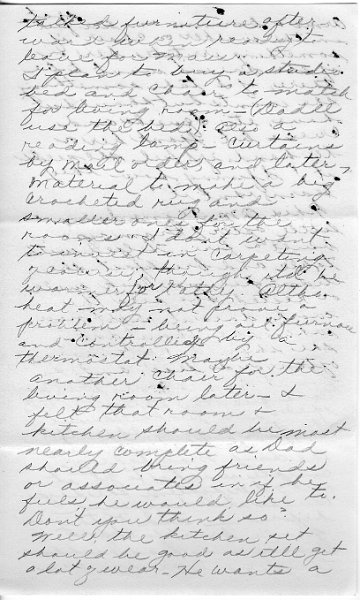 furniture after
was
leave for
I plan to buy a studio
bed and chair to match
for living room - (Dad'll
use the bed). Also a
reading lamp. Curtains
by mail order and later,
material to make a big
crocheted rug and
smaller one for the
room so don't want
to invest in carpeting
warm for
heat may not prove a
problem - being oil furnace
and controlled by a
thermostat. Maybe
another chair for the
living room later - I
felt that room &
kitchen should be most
nearly complete as Dad
should bring friends
or associates in if he
feels he would like to.
Don't you think so?
Well, the kitchen set
should be good as it'll get
a lot of wear - He wants a